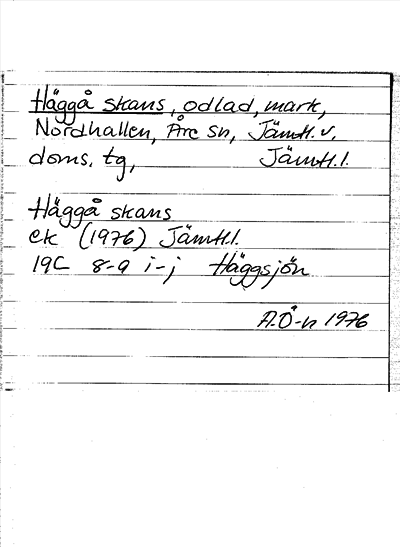 Häggå skans, odlad, mark,
Nordhallen, Åre sn, Jämtl. v.
doms. tg, Jämtl. l.
Häggå skans
ek (1976) Jämtl. l.
19C 8-9 i-j Häggsjön
A.Ö-n 1976